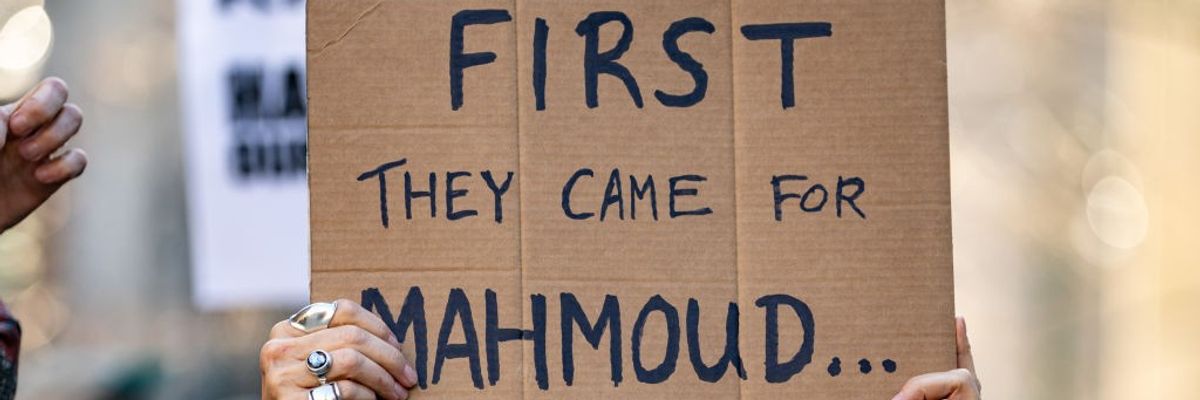 FIRST
THEY CAME FOR
MAHMOUD...